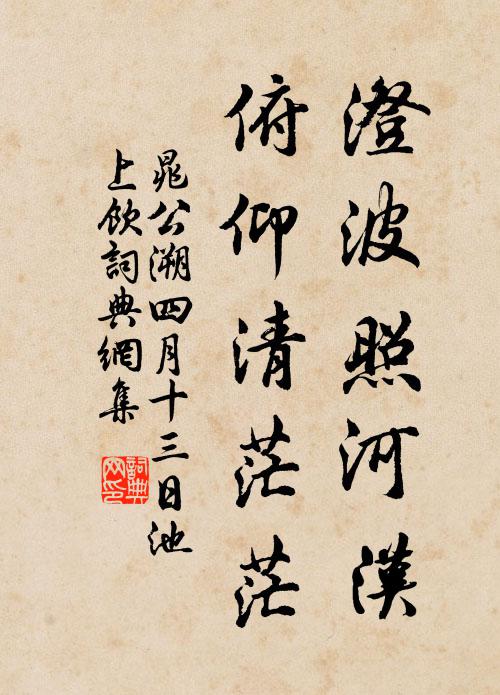 澄波照河漢
俯仰清茫茫
晁公溯四月十三日池
上飲詞典網集
詞典
网印